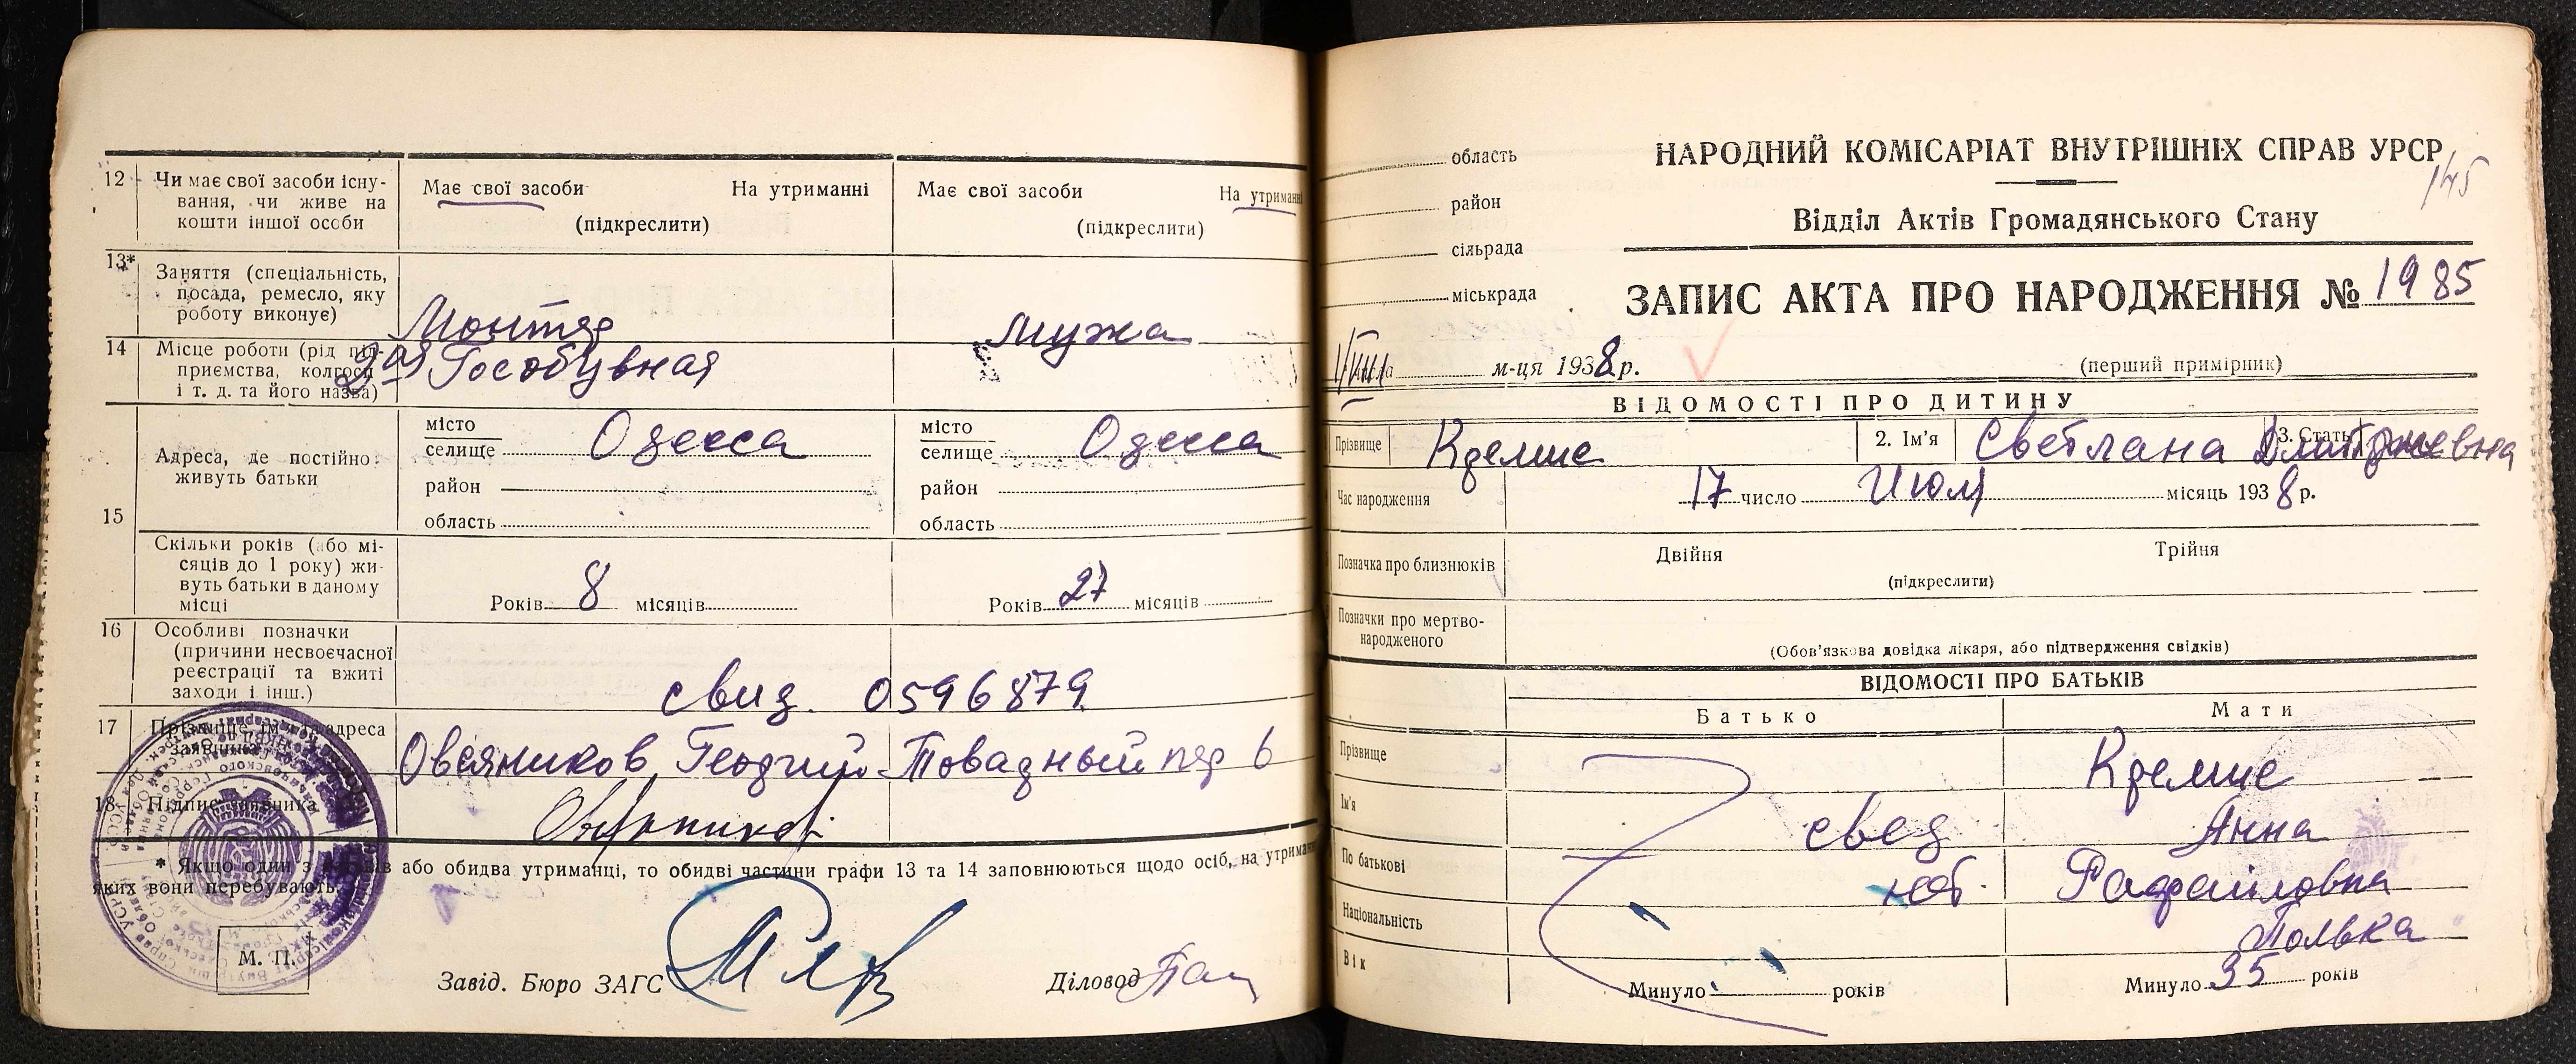 12 Чи має свої засоби існу-
вання, чи живе на
кошти іншої особи
Має свої засоби На утриманні
(підкреслити)
Має свої засоби На утриманні
(підкреслити)
13* Заняття (спеціальність,
посада, ремесло, яку
роботу виконує)
Монтер
мужа
14 Місце роботи (рід під-
приємства, колгосп
і т. д. та його назва)
2ая Гособувная
15 Адреса, де постійно
живуть батьки
місто
селище Одесса
район
область
місто
селище Одесса
район
область
Скільки років (або мі-
сяців до 1 року) жи-
вуть батьки в даному
місці
Років 8 місяців
Років 27 місяців
16 Особливі позначки
(причини несвоєчасної
реєстрації та вжиті
заходи і інш.)
свид. 0596879
17 Прізвище, ім'я та адреса
заявника
Овсяников Георгий Товарный пер 6
18 Підпис заявника
* Якщо один з батьків або обидва утриманці, то обидві частини графи 13 та 14 заповнюються щодо осіб, на утриманні
яких вони перебувають.
М. П.
Завід. Бюро ЗАГС
Діловод
область
район
сільрада
міськрада
НАРОДНИЙ КОМІСАРІАТ ВНУТРІШНІХ СПРАВ УРСР
145
Відділ Актів Громадянського Стану
ЗАПИС АКТА ПРО НАРОДЖЕННЯ № 1985
1/VIII м-ця 1938 р.
(перший примірник)
ВІДОМОСТІ ПРО ДИТИНУ
Прізвище Кремше 2. Ім'я Светлана Дмитриевна 3. Стать
Час народження 17 число Июля місяць 1938 р.
Позначка про близнюків Двійня Трійня
(підкреслити)
Позначки про мертво-
народженого
(Обов'язкова довідка лікаря, або підтвердження свідків)
ВІДОМОСТІ ПРО БАТЬКІВ
Батько Мати
Прізвище Кремше
Ім'я свед Анна
По батькові нет. Рафаиловна
Національність Полька
Вік Минуло років Минуло 35 років